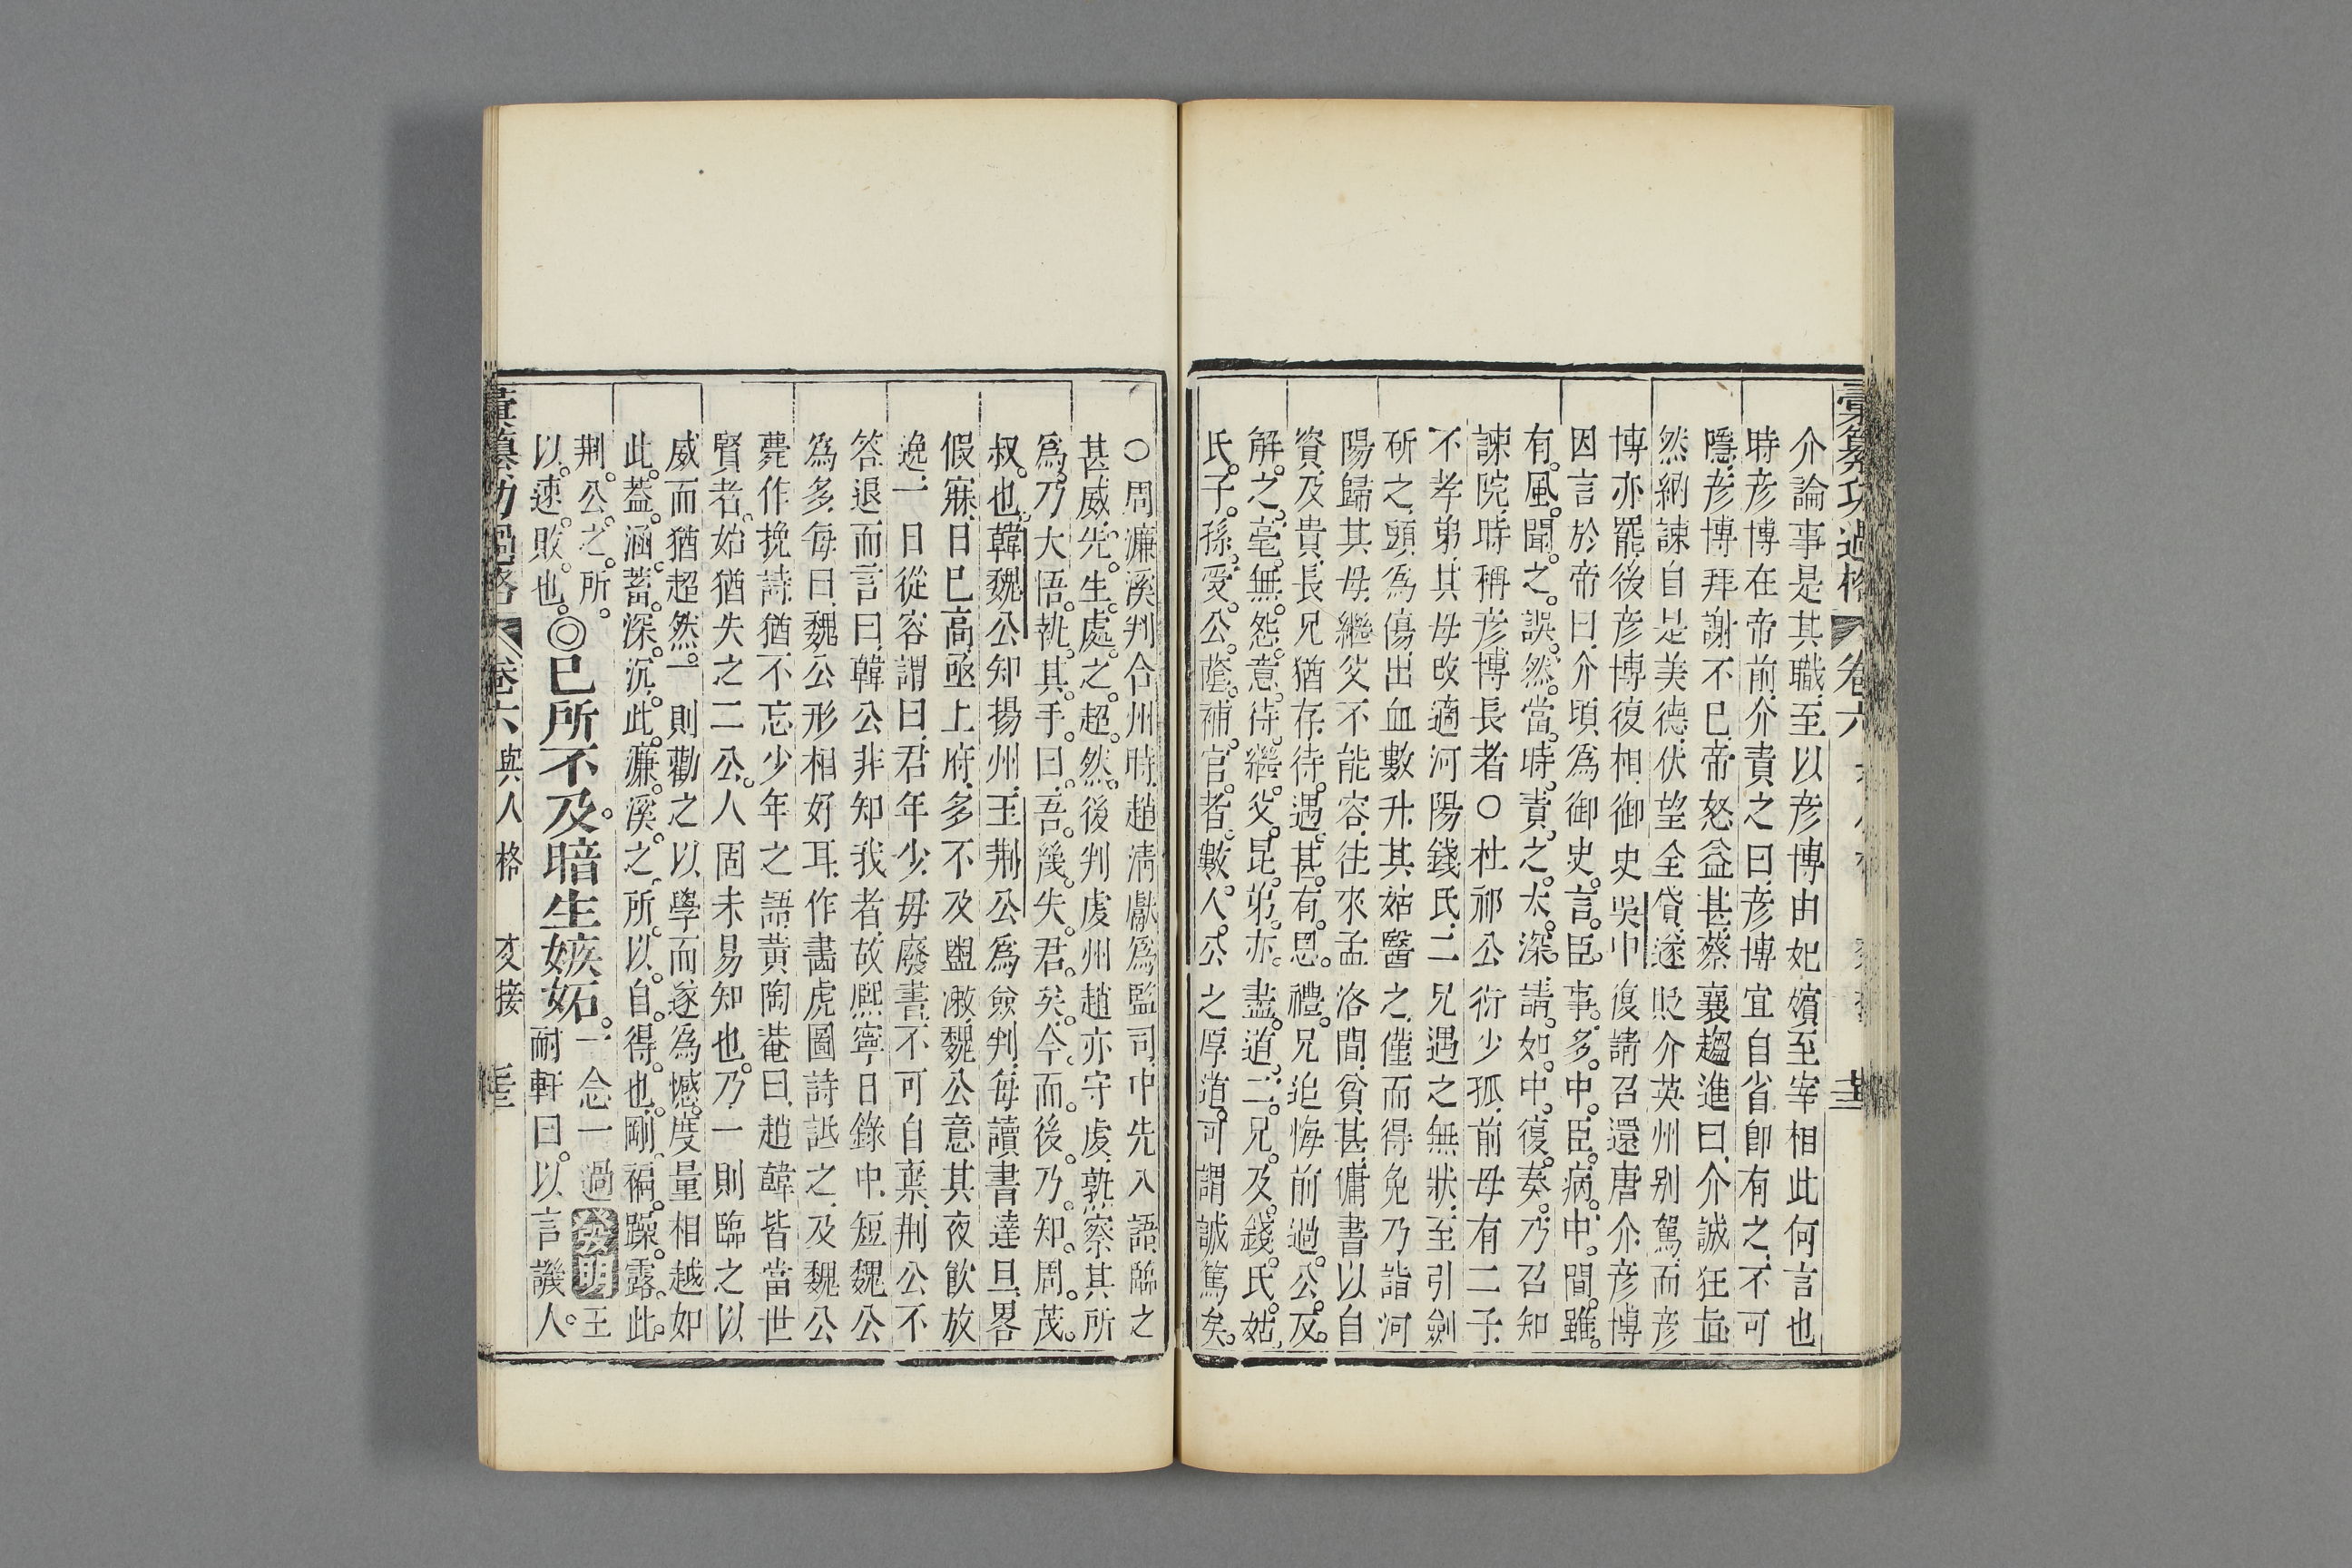 彙纂功過格 卷六
介論事是其職至以彦博由妃嬪至宰相此何言也
時彦博在帝前介責之曰彦博宜自省卽有之不可
隱彦博拜謝不已帝怒益甚蔡襄趨進曰介誠狂直
然納諫自是美德伏望全貸遂貶介英州别駕而彦
博亦罷後彦博復相御史吳中復請召還唐介彦博
因言於帝曰介頃爲御史言臣事多中臣病中間雖
有風聞之誤然當時責之太深請如中復奏乃召知
諫院時稱彦博長者○杜祁公衍少孤前母有二子
不孝弟其母改適河陽錢氏二兄遇之無狀至引劍
斫之頭爲傷出血數升其姑醫之僅而得免乃詣河
陽歸其母繼父不能容往來孟洛間貧甚傭書以自
資及貴長兄猶存待遇甚有恩禮兄追悔前過公反
解之毫無怨意待繼父昆弟亦盡道二兄及錢氏姑
氏子孫受公蔭補官者數人公之厚道可謂誠篤矣
○周濂溪判合州時趙淸獻爲監司中先入語臨之
甚威先生處之超然後判虔州趙亦守虔孰察其所
爲乃大悟執其手曰吾幾失君矣今而後乃知周茂
叔也韓魏公知揚州王荆公爲僉判每讀書達旦畧
假寐日巳高亟上府多不及盥潄魏公意其夜飮放
逸一日從容謂曰君年少毋廢書不可自棄荆公不
答退而言曰韓公非知我者故熈寧日錄中短魏公
爲多每曰魏公形相好耳作畵虎圖詩詆之及魏公
薨作挽詩猶不忘少年之語黄陶菴曰趙韓皆當世
賢者始猶失之二公人固未易知也乃一則臨之以
威而猶超然一則勸之以學而遂爲憾度量相越如
此蓋涵蓄深沉此濂溪之所以自得也剛褊躁露此
荆公之所以速敗也◎已所不及暗生嫉妬一念一過 發明 王耐軒曰以言譏人
彙纂功過格 卷六 與人格 交接